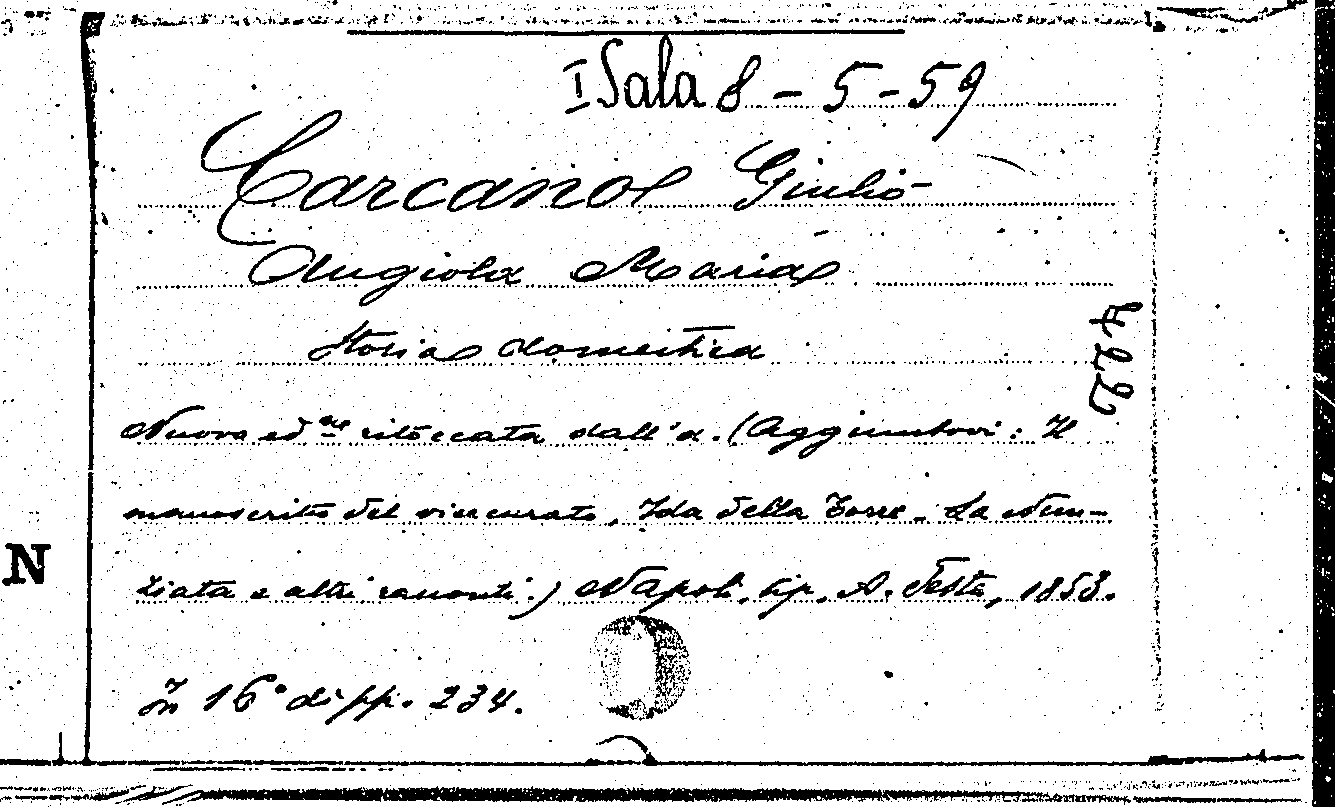 I Sala 8 - 5 - 59
Carcano Giulio
Angiola Maria
Storia domestica
422
Nuova ed.ne ritoccata dall'a. (Aggiuntovi: Il
manoscritto del vicecurato, Ida della Torre - La Nun-
ziata e altri racconti.) Napoli, tip. A. Festa, 1853.
N
In 16° di pp. 234.